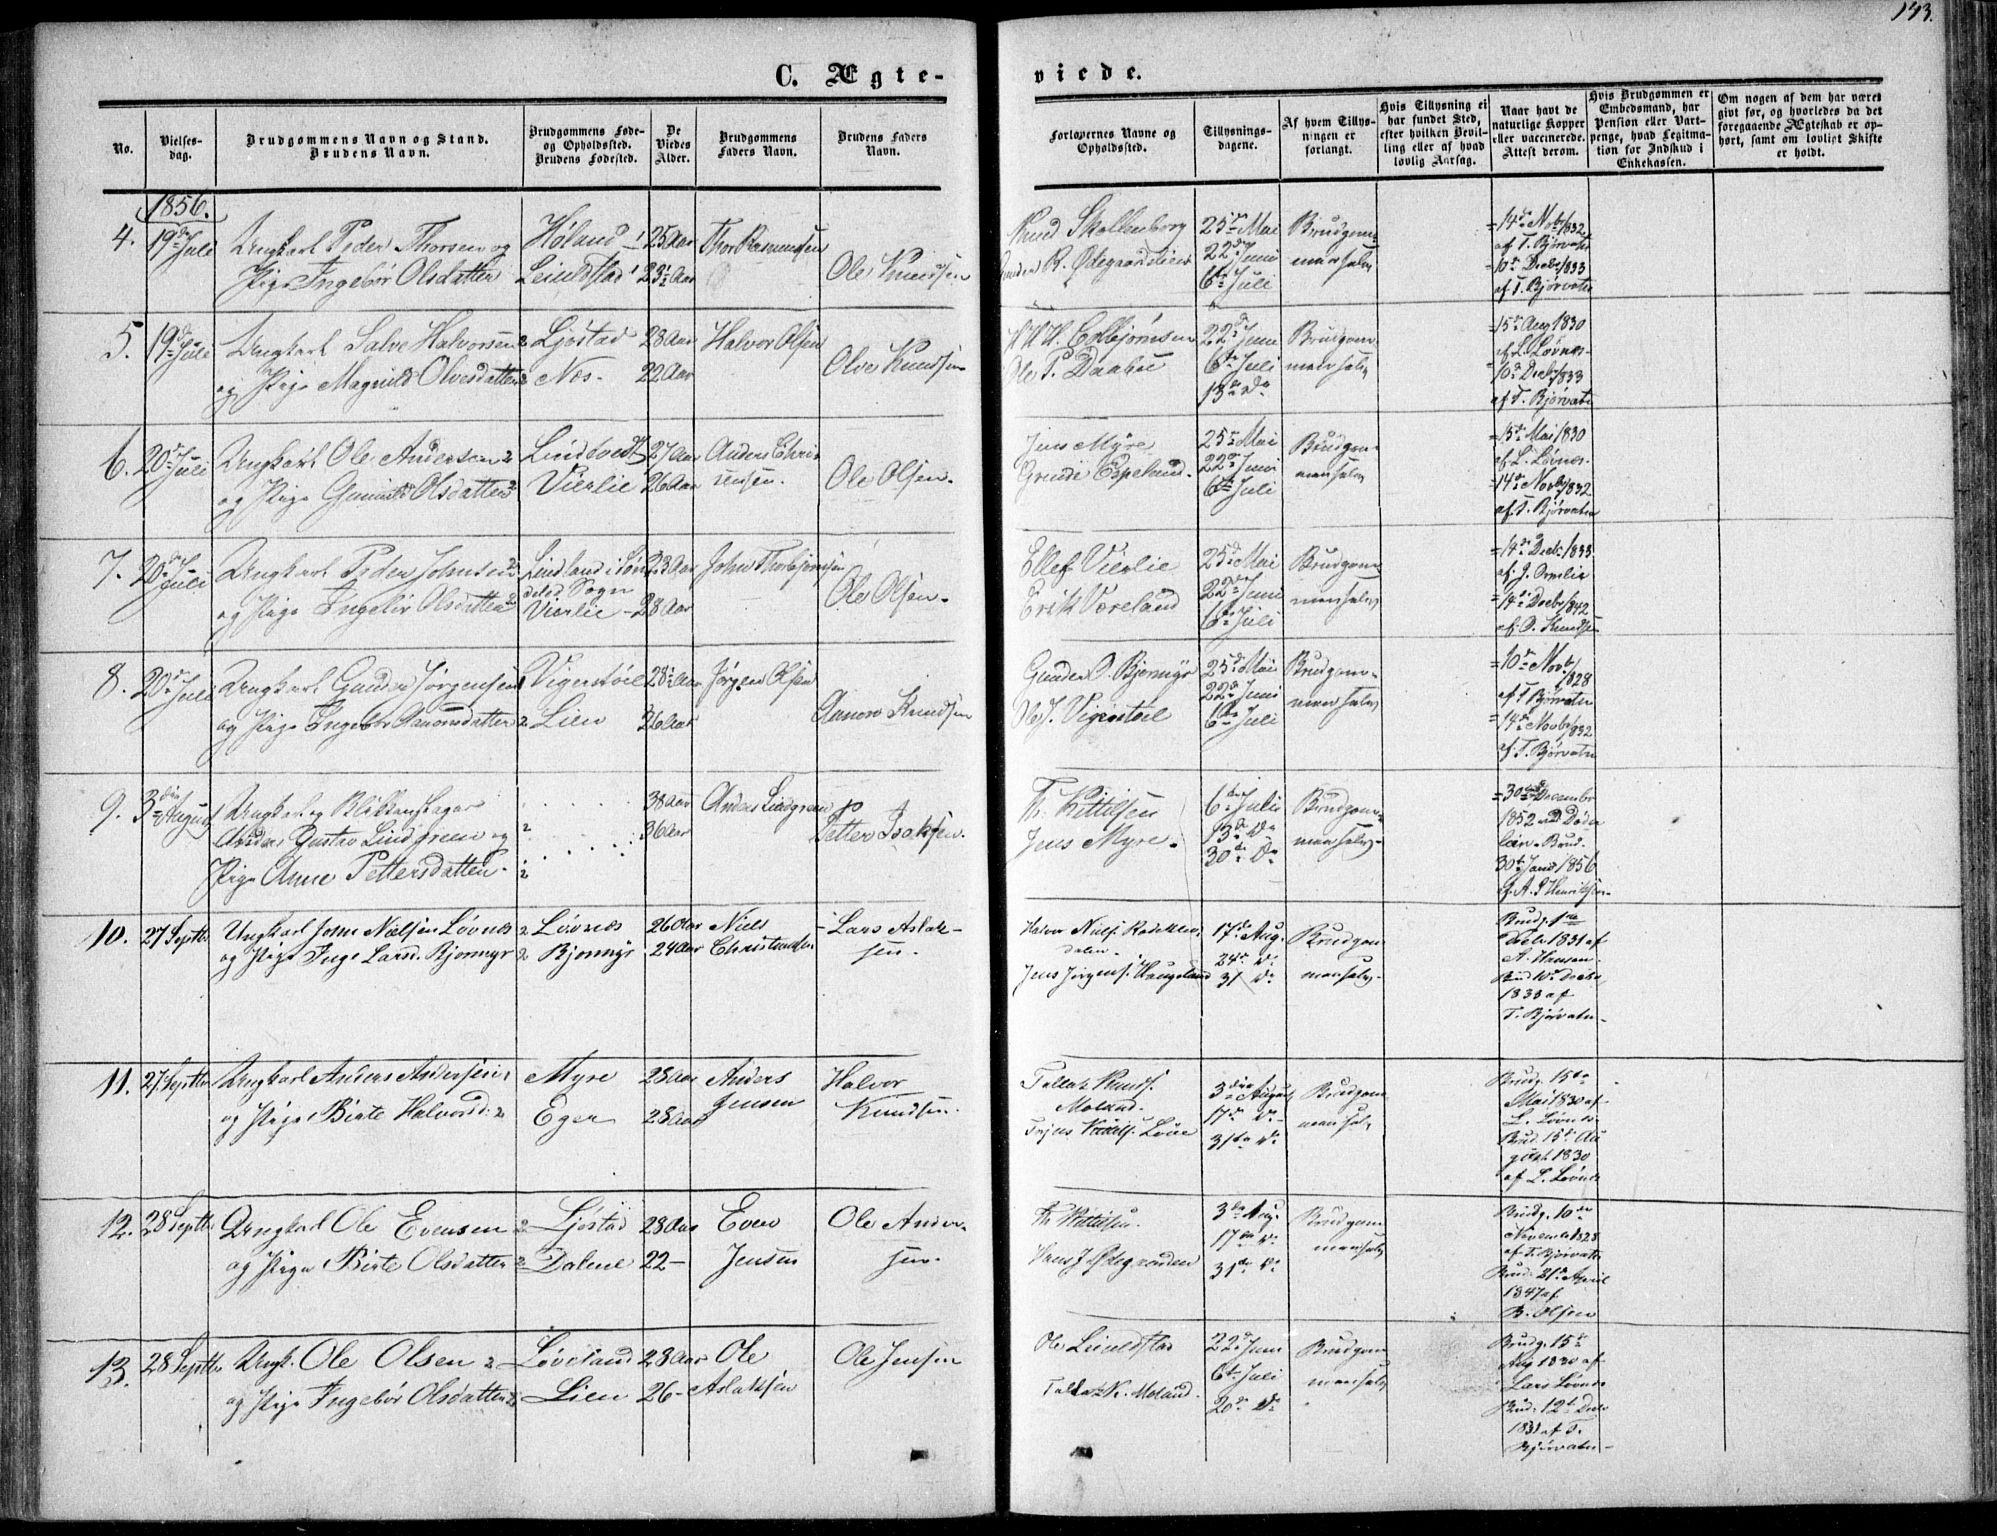 143.
C. Ægte-
viede.
No.
Vielses-
dag.
Brudgommens Navn og Stand.
Brudens Navn.
Brudgommens Føde-
og Opholdssted.
Brudens Fødested.
De
Viedes
Alder.
Brudgommens
Faders Navn.
Brudens Faders
Navn.
Forlovernes Navne og
Opholdssted.
Tillysnings-
dagene.
Af hvem Tillys-
ningen er
forlangt.
Hvis Tillysning ei
har fundet Sted,
efter hvilken Bevil-
ling eller af hvad
lovlig Aarsag.
Naar havt de
naturlige Kopper
eller vaccinerede.
Attest derom.
Hvis Brudgommen er
Embedsmand, har
Pension eller Vart-
penge, hvad Legitima-
tion for Indskud i
Enkekassen.
Om nogen af dem har været
gift før, og hvorledes da det
foregaaende Ægteskab er op-
hørt, samt om lovligt Skifte
er holdt.
1856.
4.
19de Juli
Ungkarl Peder Thorsen og
Pige Ingebor Olsdatter
Høland
Leiulfstad
25 Aar
23½ Aar
Thor Rasmussen
Ole Knudsen
Knud Skollenborg
25de Mai
22de Juni
6te Juli
Brudgom-
men selv
14de Novbr 1832
af T. Bjørvatn
10de Decbr 1833
af T. Bjørvatn
5.
19de Juli
Ungkarl Salve Halvorsen
og Pige Magnild Olvesdatter
Ljøstad
Næs.
28 Aar
22 Aar
Halvor Olsen
Olve Knudsen
22de Juni
6te Juli
13de Do
Brudgom-
men selv
15de Aug 1830
af L. Løvnes
10de Decbr 1833
af T. Bjørvatn
6.
20de Juli
Ungkarl Ole Andersen
og Pige Gunild Olsdatter
Lindtvedt
Vierlie
27 Aar
26 Aar
Anders Chris-
tensen.
Ole Olsen.
Jens Myre
Grunde Espelund.
25de Mai
22de Juni
6te Juli
Brudgom-
men selv
15de Mai 1830
af L. Løvnes.
14de Novbr 1832
af T. Bjørvatn
7.
20de Juli
Ungkarl Peder Johnsen
og Pige Ingebor Olsdatter
Lindland i Søn-
deled Sogn
Vierlie
23 Aar
28 Aar
John Thorbjørnsen
Ole Olsen.
Ellef Vierlie
Erik Væreland
25de Mai
22de Juni
6te Juli
Brudgom-
men selv
14de Decbr 1833
14de Decbr 1842
af O. Knudsen
8.
20de Juli
Ungkarl Gunder Jørgensen
og Pige Ingebor Aanonsdatter
Vigerstøil
Lien
28½ Aar
36 Aar
Jørgen Olsen
Aanon Knudsen
Gunder O. Bjørmyr
Ole J. Vigerstøil
25de Mai
22de Juni
6te Juli
Brudgom-
men selv
10de Novbr
1828
af T. Bjørvatn
14de Novbr 1832
af T. Bjørvatn
9.
3die August
Ungkarl og Blikkenslager
Anders Gustav Lindgreen og
Pige Anne Pettersdatter.
38 Aar
36 Aar
Anders Lindgreen
Petter Isaksen.
Th. Kittilsen
Jens Myre.
6te Juli
13de Do
30de Do
Brudgom-
men selv.
30de December
1852
30te Janr 1856
10.
27 Septbr
Ungkarl John Nielsen Løvnes
og Pige Inge Larsd. Bjørmyr
Løvnæs
Bjørmyr
26 Aar
24 Aar
Niels
Christensen
Lars Aslak-
sen.
Jens Jørgens. Haugeland
17de Aug.
24de Do
31 Do
Brudgom-
men selv.
Decbr 1831 af
A. Hansen.
Brud. 10de Decbr
1833 af
T. Bjørvatn.
11.
27 Septbr
Ungkarl Anders Andersen
og Pige Birte Halvorsd.
Myre
Eger
28 Aar
28 Aar
Anders
Jensen
Halvor
Knudsen.
Tallak Knuds.
Moland.
3die August
17de Do
31te Do
Brudgom-
men selv
Brudg. 15de
Mai 1830 af
L. Løvnes
Brud. 15de Au
gust 1830
af L. Løvnes
12.
28 Septbr
Ungkarl Ole Evensen
og Pige Birte Olsdatter
Ljøstad
Dalene
28 Aar
22 -
Even
Jensen
Ole Ander-
sen.
Th. Kittilsen.
Hans J. Ødegaarden
3die Aug.
17de Do
31te Do
Brudgom-
men selv
Brudg. 10de
November 1828
af T. Bjørvatn
Brud. 21de April
1847 af
B. Olsen
13.
28 Septbr
Ungk. Ole Olsen
og Pige Ingebor Olsdatter
Løveland
Lien
28 Aar
26 -
Ole
Aslaksen
Ole Jensen
Ole Leiulfstad
Tallak K. Moland.
22de Juni
6te Juli
20de Do
Brudgom-
men selv
Brudg. 15de
Aug 1830 af
Lars Løvnes
Brud. 12te Decbr
1831 af T.
Bjørvatn.